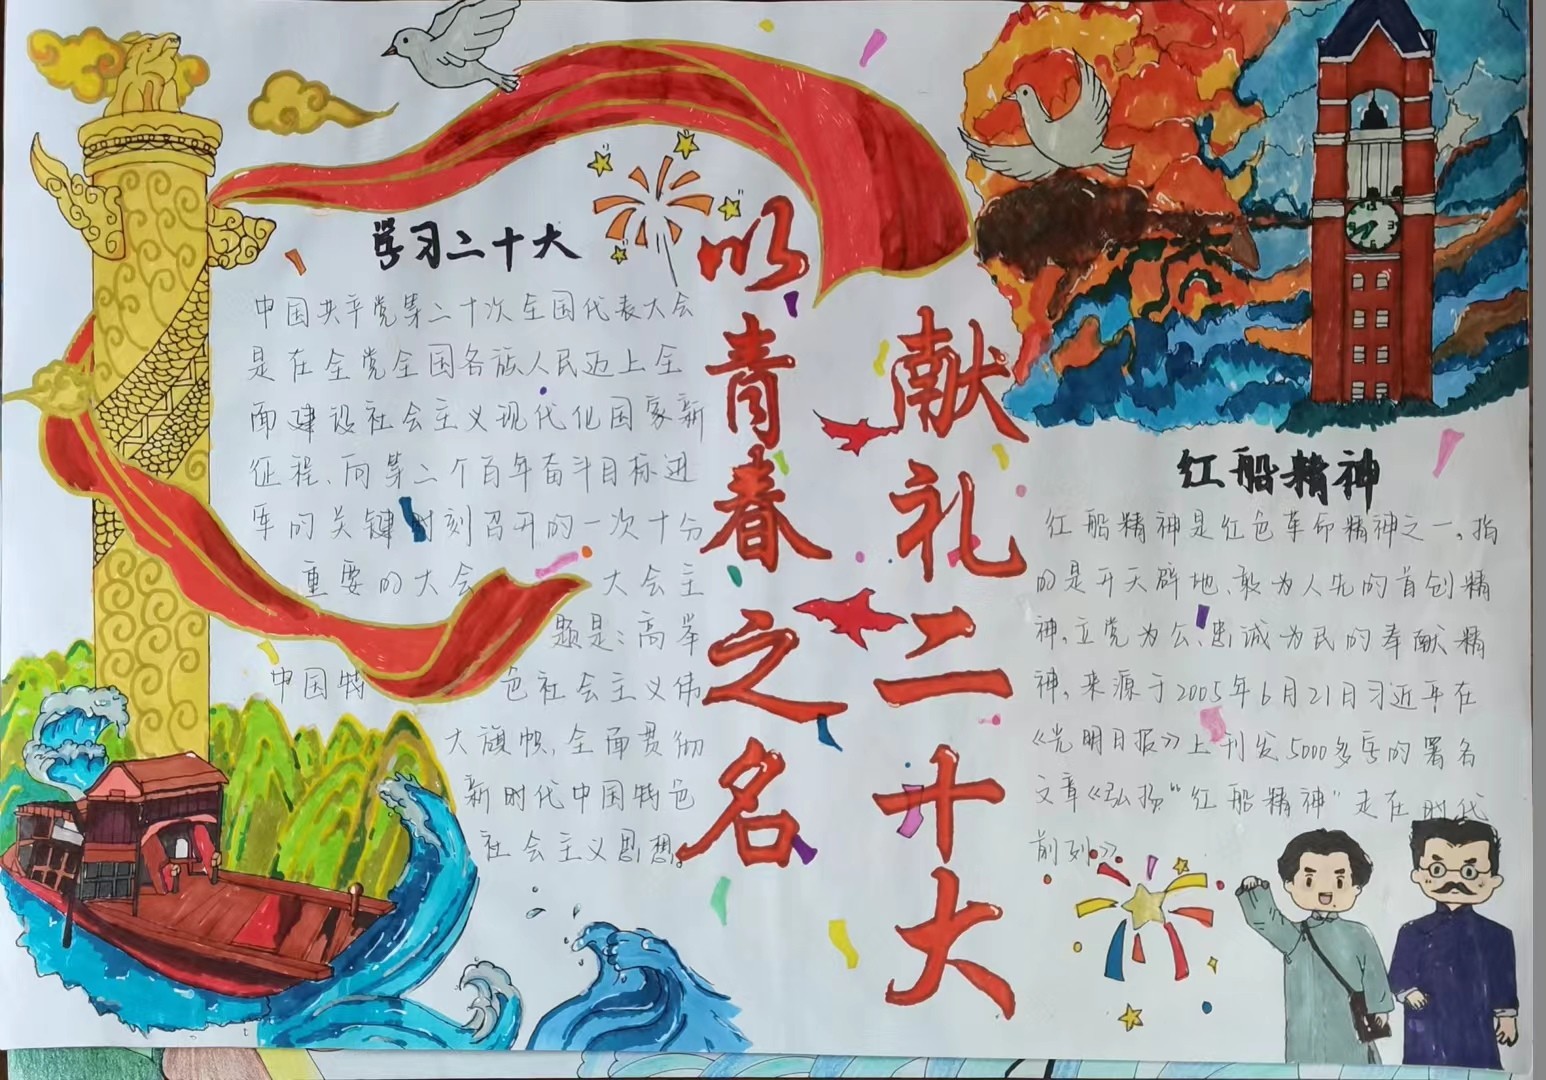 学习二十大
中国共产党第二十次全国代表大会
是在全党全国各族人民迈上全
面建设社会主义现代化国家新
征程、向第二个百年奋斗目标进
军的关键时刻召开的一次十分
重要的大会 大会主
题是：高举
中国特 色社会主义伟
大旗帜、全面贯彻
新时代中国特色
社会主义思想。
以青春之名
献礼二十大
红船精神
红船精神是红色革命精神之一，指
的是开天辟地、敢为人先的首创精
神，立党为公、忠诚为民的奉献精
神，来源于2005年6月21日习近平在
《光明日报》上刊发5000多字的署名
文章《弘扬“红船精神”走在时代
前列》